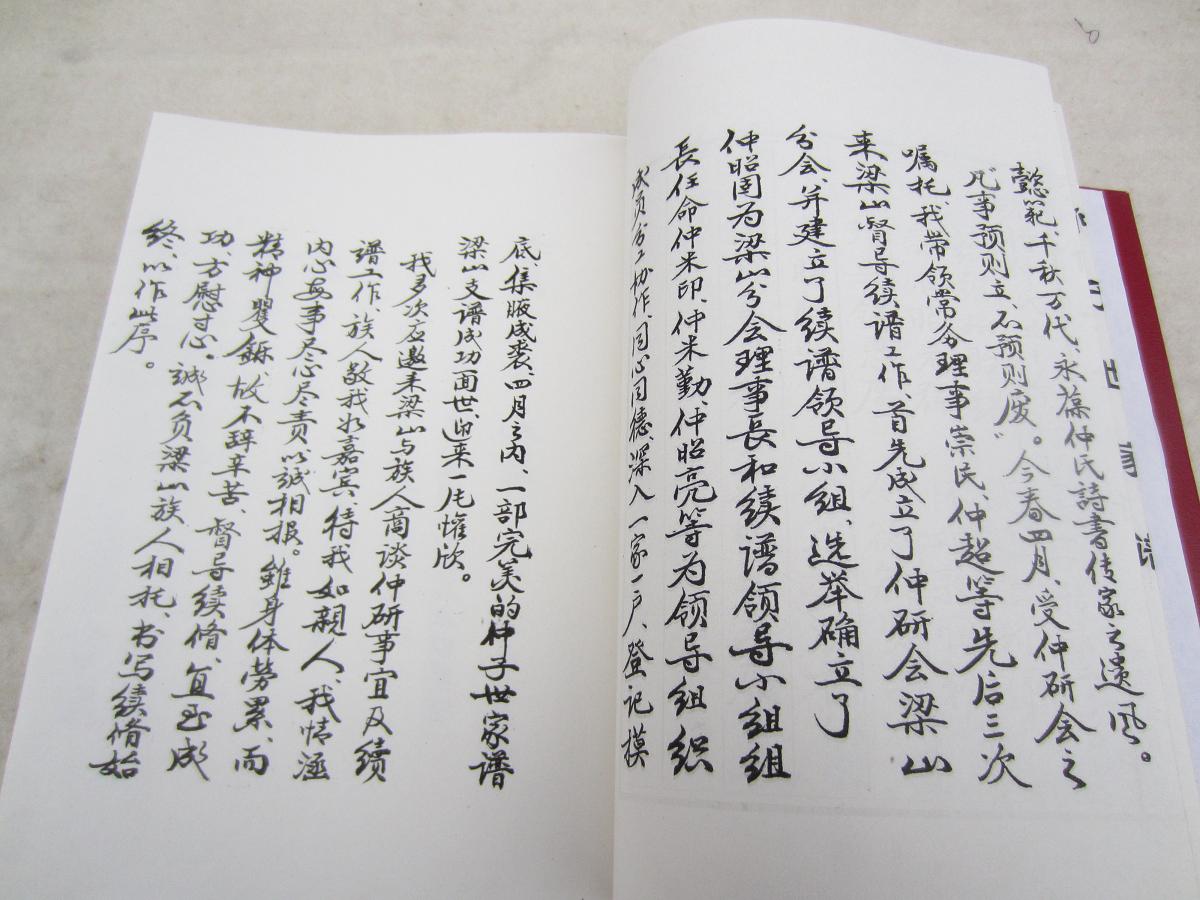 懿范千秋万代、永葆仲氏詩書传家之遗风。
凡事预则立、不预则废。今春四月、受仲研会之
嘱托、我带领常务理事崇民、仲超等先后三次
来梁山督导续谱工作、首先成立了仲研会梁山
分会、并建立了续谱领导小组、选举确立了
仲昭固为梁山分会理事長和续谱领导小组组
長任命仲米印、仲米勤、仲昭亮等为领导组织
成员分工协作、同心同德、深入一家一户、登记摸
底、集腋成裘、四月之内、一部完美的仲子世家谱
梁山支谱成功面世、迎来一片懽欣。
我多次应邀来梁山与族人商谈仲研事宜及续
谱工作、族人敬我如嘉宾、待我如親人、我情涵
内心、要事尽心尽责以诚相报。雖身体劳累、而
精神矍鑠、故不辞辛苦、督导续脩、直至成
功、方慰寸心。誠不负梁山族人相托、书写续脩始
终、以作此序。
世
家
谱